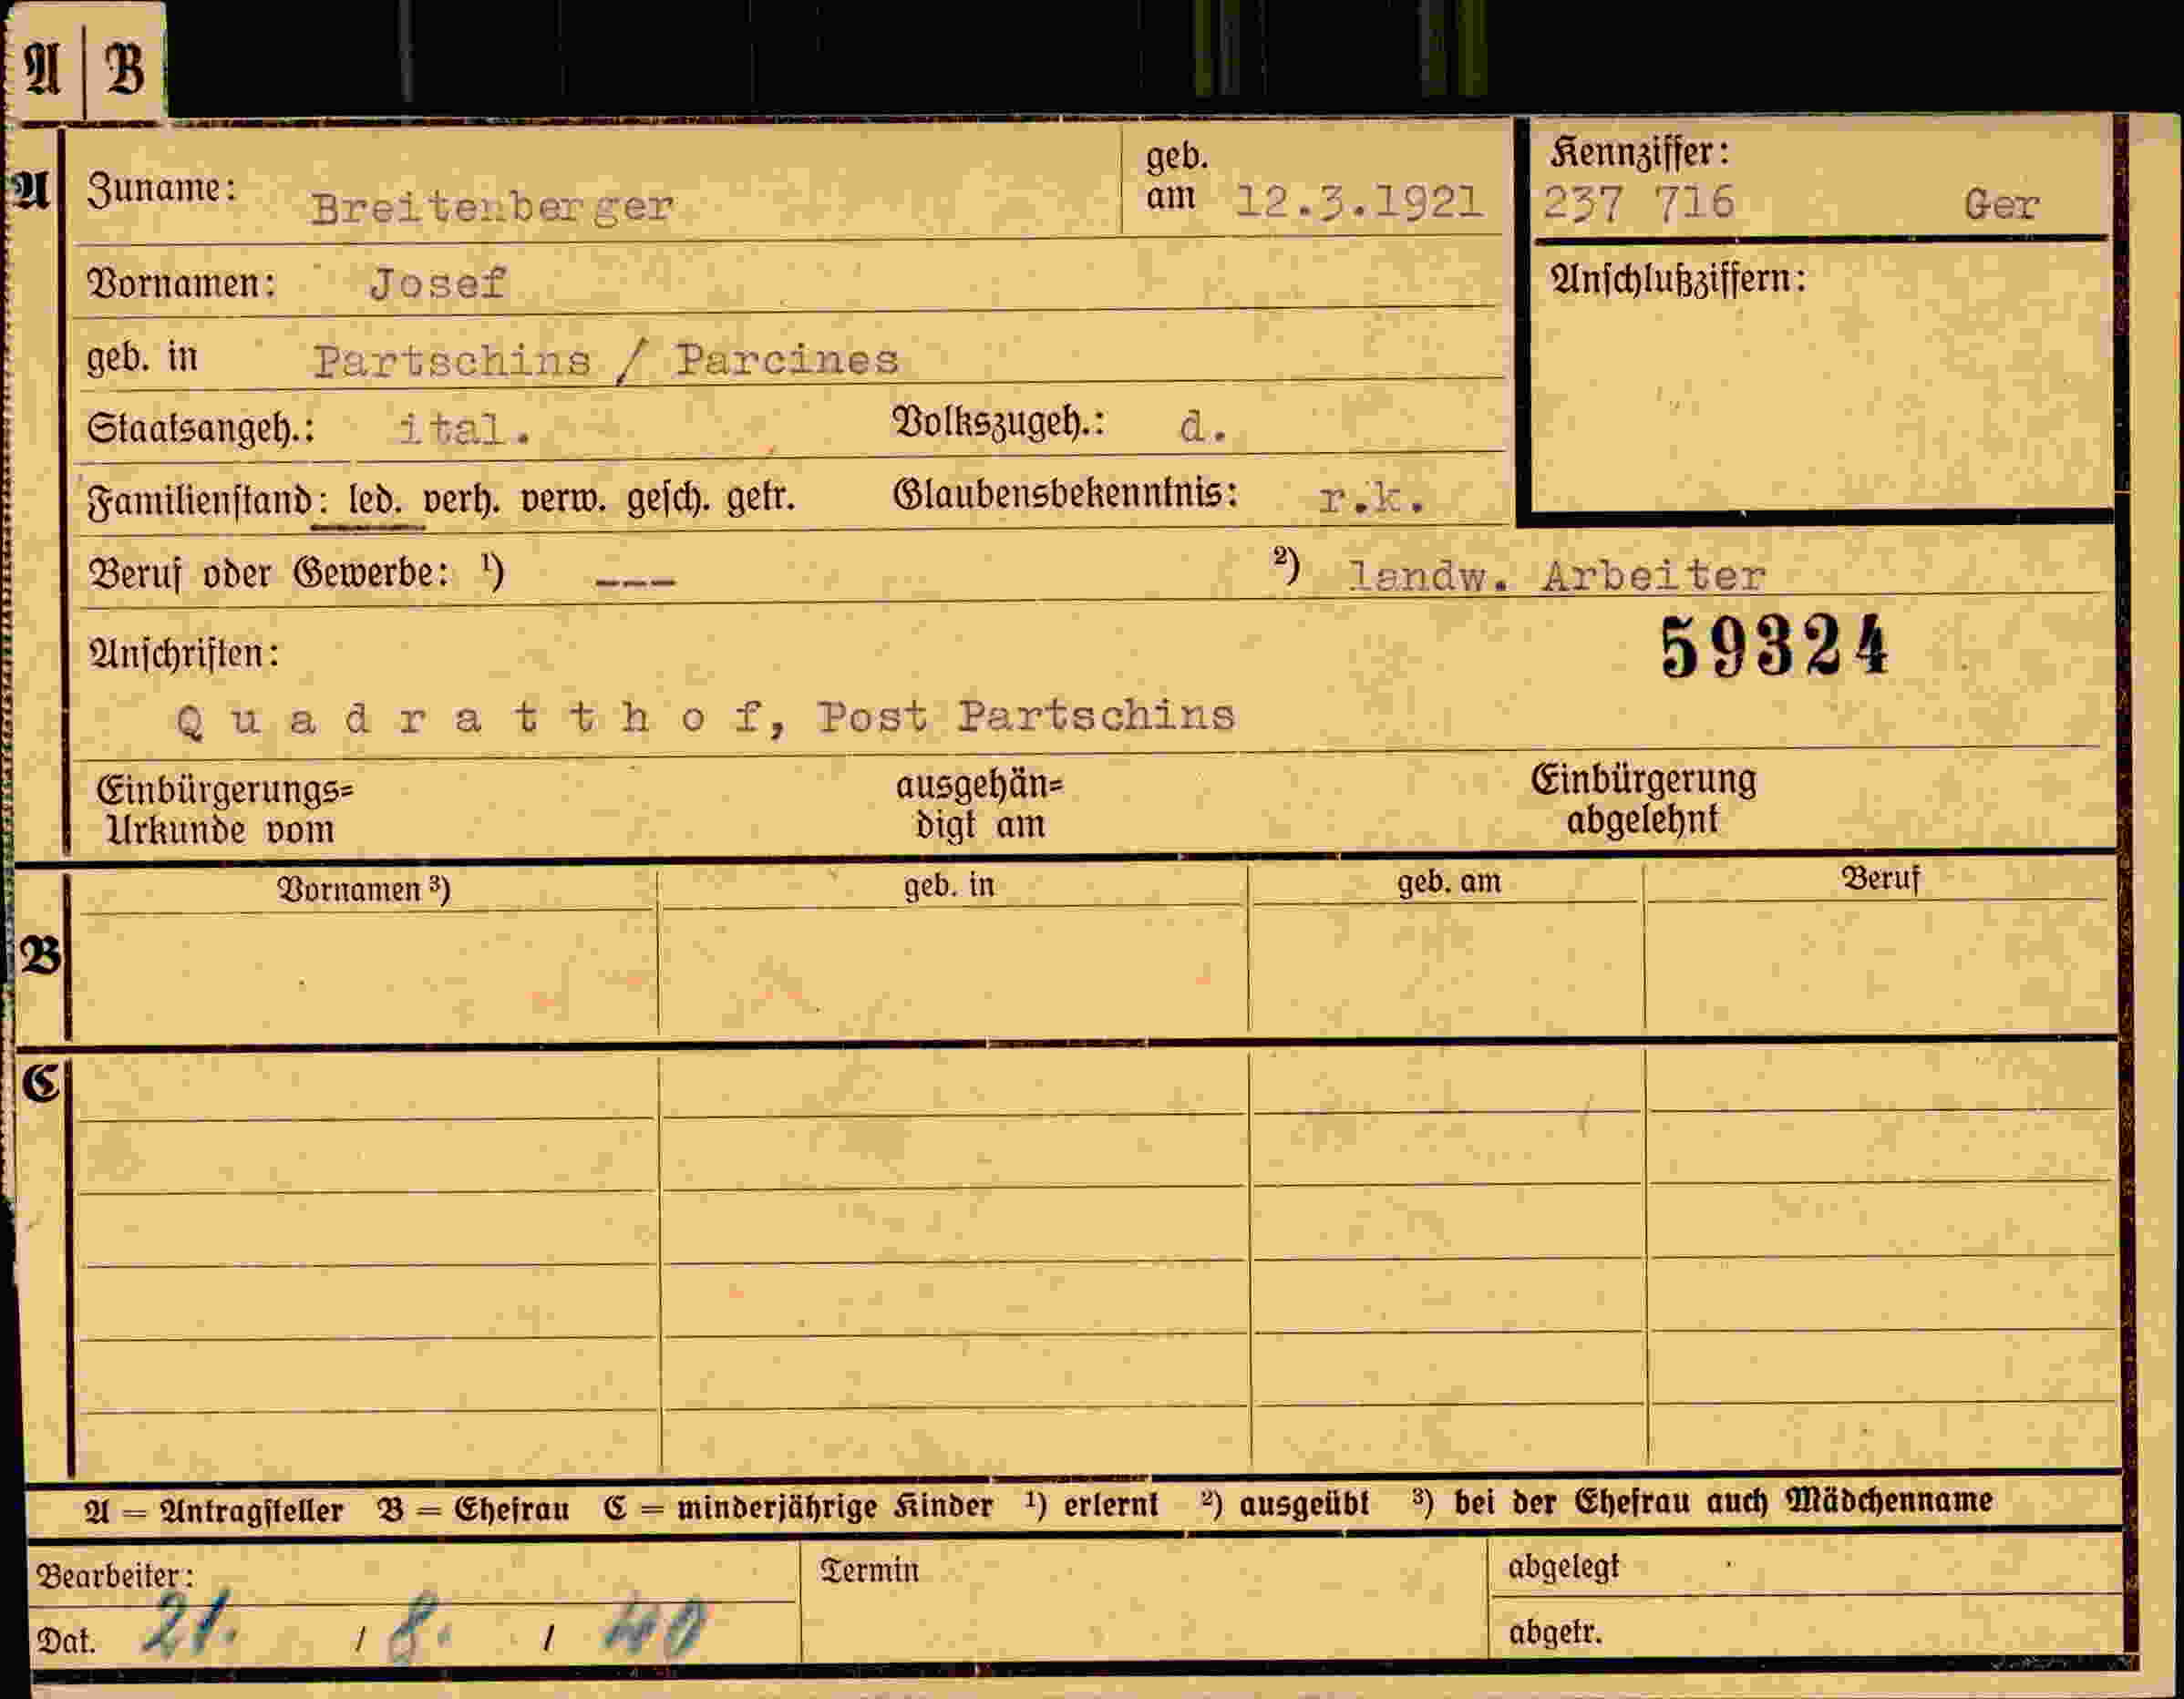 A | B
A Zuname: Breitenberger geb. am 12.3.1921
Kennziffer:
237 716 Ger
Vornamen: Josef
Anschlußziffern:
geb. in Partschins / Parcines
Staatsangeh.: ital. Volkszugeh.: d.
Familienstand: led. verh. verw. gesch. getr. Glaubensbekenntnis: r.k.
Beruf oder Gewerbe: ¹) --- ²) landw. Arbeiter
Anschriften: 59324
Quadratthof, Post Partschins
Einbürgerungs= ausgehän= Einbürgerung
Urkunde vom digt am abgelehnt
Vornamen ³) geb. in geb. am Beruf
B
C
A = Antragsteller B = Ehefrau C = minderjährige Kinder ¹) erlernt ²) ausgeübt ³) bei der Ehefrau auch Mädchenname
Bearbeiter: Termin abgelegt
Dat. 21. / 8. / 40 abgetr.